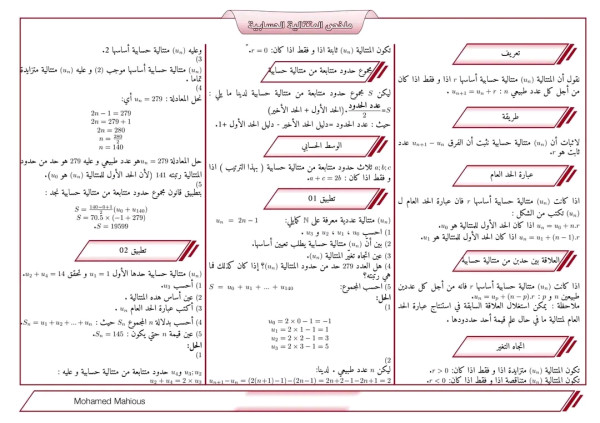 ملخص المتتالية الحسابية
تعريف
نقول أن المتتالية (uₙ) متتالية حسابية أساسها r اذا و فقط اذا كان
من أجل كل عدد طبيعي n : uₙ₊₁ = uₙ + r.
طريقة
لاثبات أن (uₙ) متتالية حسابية نثبت أن الفرق uₙ₊₁ − uₙ عدد
ثابت هو r.
عبارة الحد العام
اذا كانت (uₙ) متتالية حسابية أساسها r فان عبارة الحد العام ل
(uₙ) تكتب من الشكل :
uₙ = u₀ + n.r اذا كان الحد الأول للمتتالية هو u₀.
uₙ = u₁ + (n − 1).r اذا كان الحد الأول للمتتالية هو u₁
العلاقة بين حدين من متتالية حسابية
اذا كانت (uₙ) متتالية حسابية أساسها r فانه من أجل كل عددين
طبيعيين n و p : uₙ = uₚ + (n − p).r
ملاحظة : يمكن استغلال العلاقة السابقة في استنتاج عبارة الحد
العام لمتتالية ما في حال علم قيمة أحد حدودها .
اتجاه التغير
تكون المتتالية (uₙ) متزايدة اذا و فقط اذا كان: r > 0.
تكون المتتالية (uₙ) متناقصة اذا و فقط اذا كان: r < 0.
تكون المتتالية (uₙ) ثابتة اذا و فقط اذا كان: r = 0.
مجموع حدود متتابعة من متتالية حسابية
ليكن S مجموع حدود متتابعة من متتالية حسابية لدينا ما يلي :
S = عدد الحدود/2 .(الحد الأول + الحد الأخير)
حيث : عدد الحدود =دليل الحد الأخير - دليل الحد الأول +1.
الوسط الحسابي
a;b;c ثلاث حدود متتابعة من متتالية حسابية ( بهذا الترتيب ) اذا
و فقط اذا كان : a + c = 2b.
تطبيق 01
(uₙ) متتالية عددية معرفة على ℕ كمايلي: uₙ = 2n − 1
1) احسب u₀ ، u₁ ، u₂ و u₃ .
2) بين أن (uₙ) متتالية حسابية يطلب تعيين أساسها.
3) عين اتجاه تغير المتتالية (uₙ).
4) هل العدد 279 حد من حدود المتتالية (uₙ)؟ إذا كان كذلك فما
هي رتبته؟
5) احسب المجموع: S = u₀ + u₁ + ... + u₁₄₀
الحل:
1)
u₀ = 2 × 0 − 1 = −1
u₁ = 2 × 1 − 1 = 1
u₂ = 2 × 2 − 1 = 3
u₃ = 2 × 3 − 1 = 5
2)
ليكن n عدد طبيعي . لدينا:
uₙ₊₁−uₙ = (2(n+1)−1)−(2n−1) = 2n+2−1−2n+1 = 2
وعليه (uₙ) متتالية حسابية أساسها 2.
3)
(uₙ) متتالية حسابية أساسها موجب (2) و عليه (uₙ) متتالية متزايدة
تماما .
4)
نحل المعادلة : uₙ = 279 أي:
2n − 1 = 279
2n = 279 + 1
2n = 280
n = 280/2
n = 140
حل المعادلة uₙ = 279 هو عدد طبيعي و عليه 279 هو حد من حدود
المتتالية رتبته 141 (لأن الحد الأول للمتتالية (uₙ) هو u₀).
5)
بتطبيق قانون مجموع حدود متتابعة من متتالية حسابية نجد :
S = 140−0+1/2 (u₀ + u₁₄₀)
S = 70.5 × (−1 + 279)
S = 19599.
تطبيق 02
(uₙ) متتالية حسابية حدها الأول u₁ = 1 و تحقق u₂ + u₄ = 14.
1) أحسب u₃
2) عين أساس هذه المتتالية .
3) أكتب عبارة الحد العام uₙ .
4) أحسب بدلالة n المجموع Sₙ حيث : Sₙ = u₁ + u₂ + ... + uₙ.
5) عين قيمة n حتي يكون : Sₙ = 145.
الحل:
1)
u₂; u₃ و u₄ حدود متتابعة من متتالية حسابية و عليه :
u₂ + u₄ = 2 × u₃
Mohamed Mahious